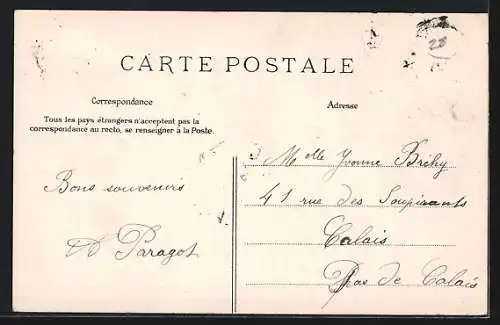 CARTE POSTALE
Correspondance
Adresse
Tous les pays étrangers n'acceptent pas la
correspondance au recto, se renseigner à la Poste.
Bons souvenirs
Paragot
Melle Yvonne Bréhy
41 rue des Soupirants
Calais
Pas de Calais